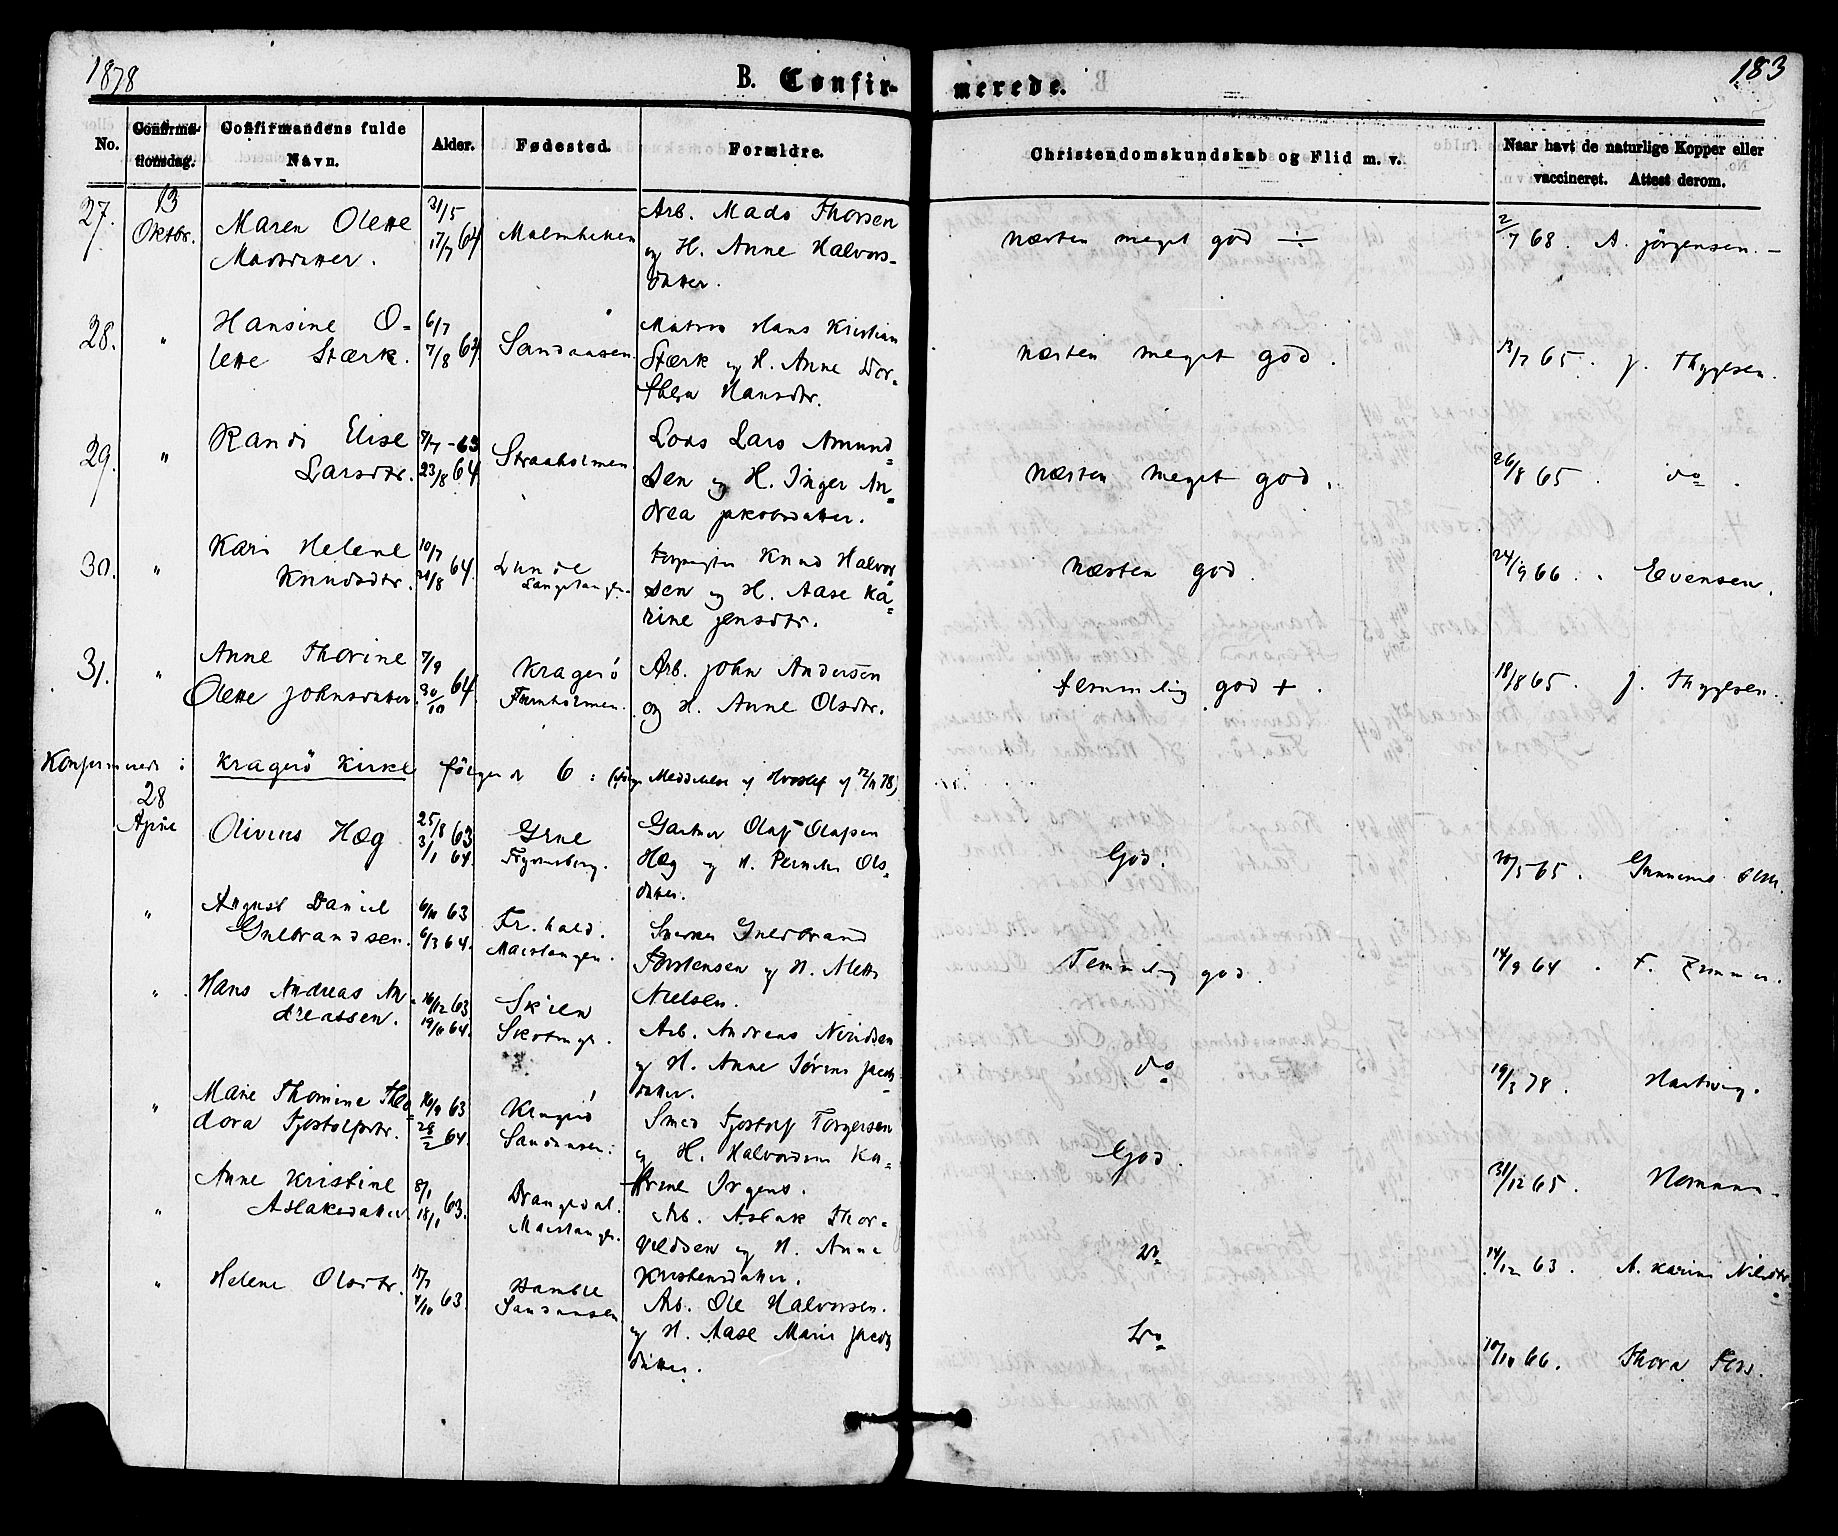 1878
B. Confir-
merede.
183
No.
Confirma-
tionsdag.
Confirmandens fulde
Navn.
Alder.
Fødested.
Forældre.
Christendomskundskab og Flid m. v.
Naar havt de naturlige Kopper eller
vaccineret. Attest derom.
27.
13
Oktbr.
Maren Olette
Madsdatter.
31/5
17/7 64
Malmhetten
Arb. Mads Thorsen
og H. Anne Halvors-
datter.
næsten meget god ÷
2/7 68. A. Jörgensen. -
28.
"
Hansine O-
lette Stærk.
6/7
7/8 64
Sandaasen
Matros Hans Kristian
Stærk og H. Anne Dor-
thea Hansdtr.
næsten meget god.
13/7 65. J. Thygesen.
29.
"
Randi Elise
Larsdtr.
7/7 - 63
23/8 64
Straaholmen
Lods Lars Amund-
sen og H. Inger An-
drea Jakobsdatter.
næsten meget god.
26/8 65. do.
30.
"
Kari Helene
Knudsdtr.
10/7
21/8 64.
Lunde
Langetangen.
Knud Halvor
sen og H. Aase Ka-
rine Jensdtr.
næsten god.
24/9 66. Evensen.
31.
"
Anne Thorine
Olette Johnsdatter
7/9
30/10 64.
Kragerö
Furuholmen.
Arb. John Andersen
og H. Anne Olsdtr.
temmelig god +.
18/8 65. J. Thygesen.
Konfirmerede i Kragerö Kirke følger No 6: (ifølge Meddelelse af 12/11 78)
28
April
Olivius Hæg
25/8 63
3/1 64.
Gartner Olaf Olafsen
Hæg og H. Pernille Ols-
datter.
God.
10/5 65.
"
August Daniel
Gulbrandsen.
6/10 63
6/3 64.
Fr.hald.
Snerker Guldbrand
Torstensen og H. Mette
Nielsen.
Temmelig god.
14/9 64. F. Zimmer.
"
Hans Andreas An-
dreassen.
16/12 63
19/11 64.
Skien
Arb. Andreas
og H. Anne Jörine Jacobs
datter.
do
19/3 78. Hartvig.
"
Marie Thomine Theo-
dora Fjostolfsdtr.
16/9 63
28/2 64.
Kragerö
Sandaasen.
Smed Fjostolf Torgersen
og H. Halvordine Ka-
thrine Jrgens.
God.
31/12 65.
"
Anne Kristine
Aslaksdatter
8/1
18/1 63.
Drangedal.
Arb. Aslak Thor-
valdsen og H. Anne
Kristensdatter.
Do
14/12 63. A. Karine Nilsdtr.
"
Helene Olsdtr.
15/7
4/10 63.
Bamble
Sandaasen
Arb. Ole Halvorsen.
og H. Aase Marie Jacobs
datter.
Do
10/10 66. Thora